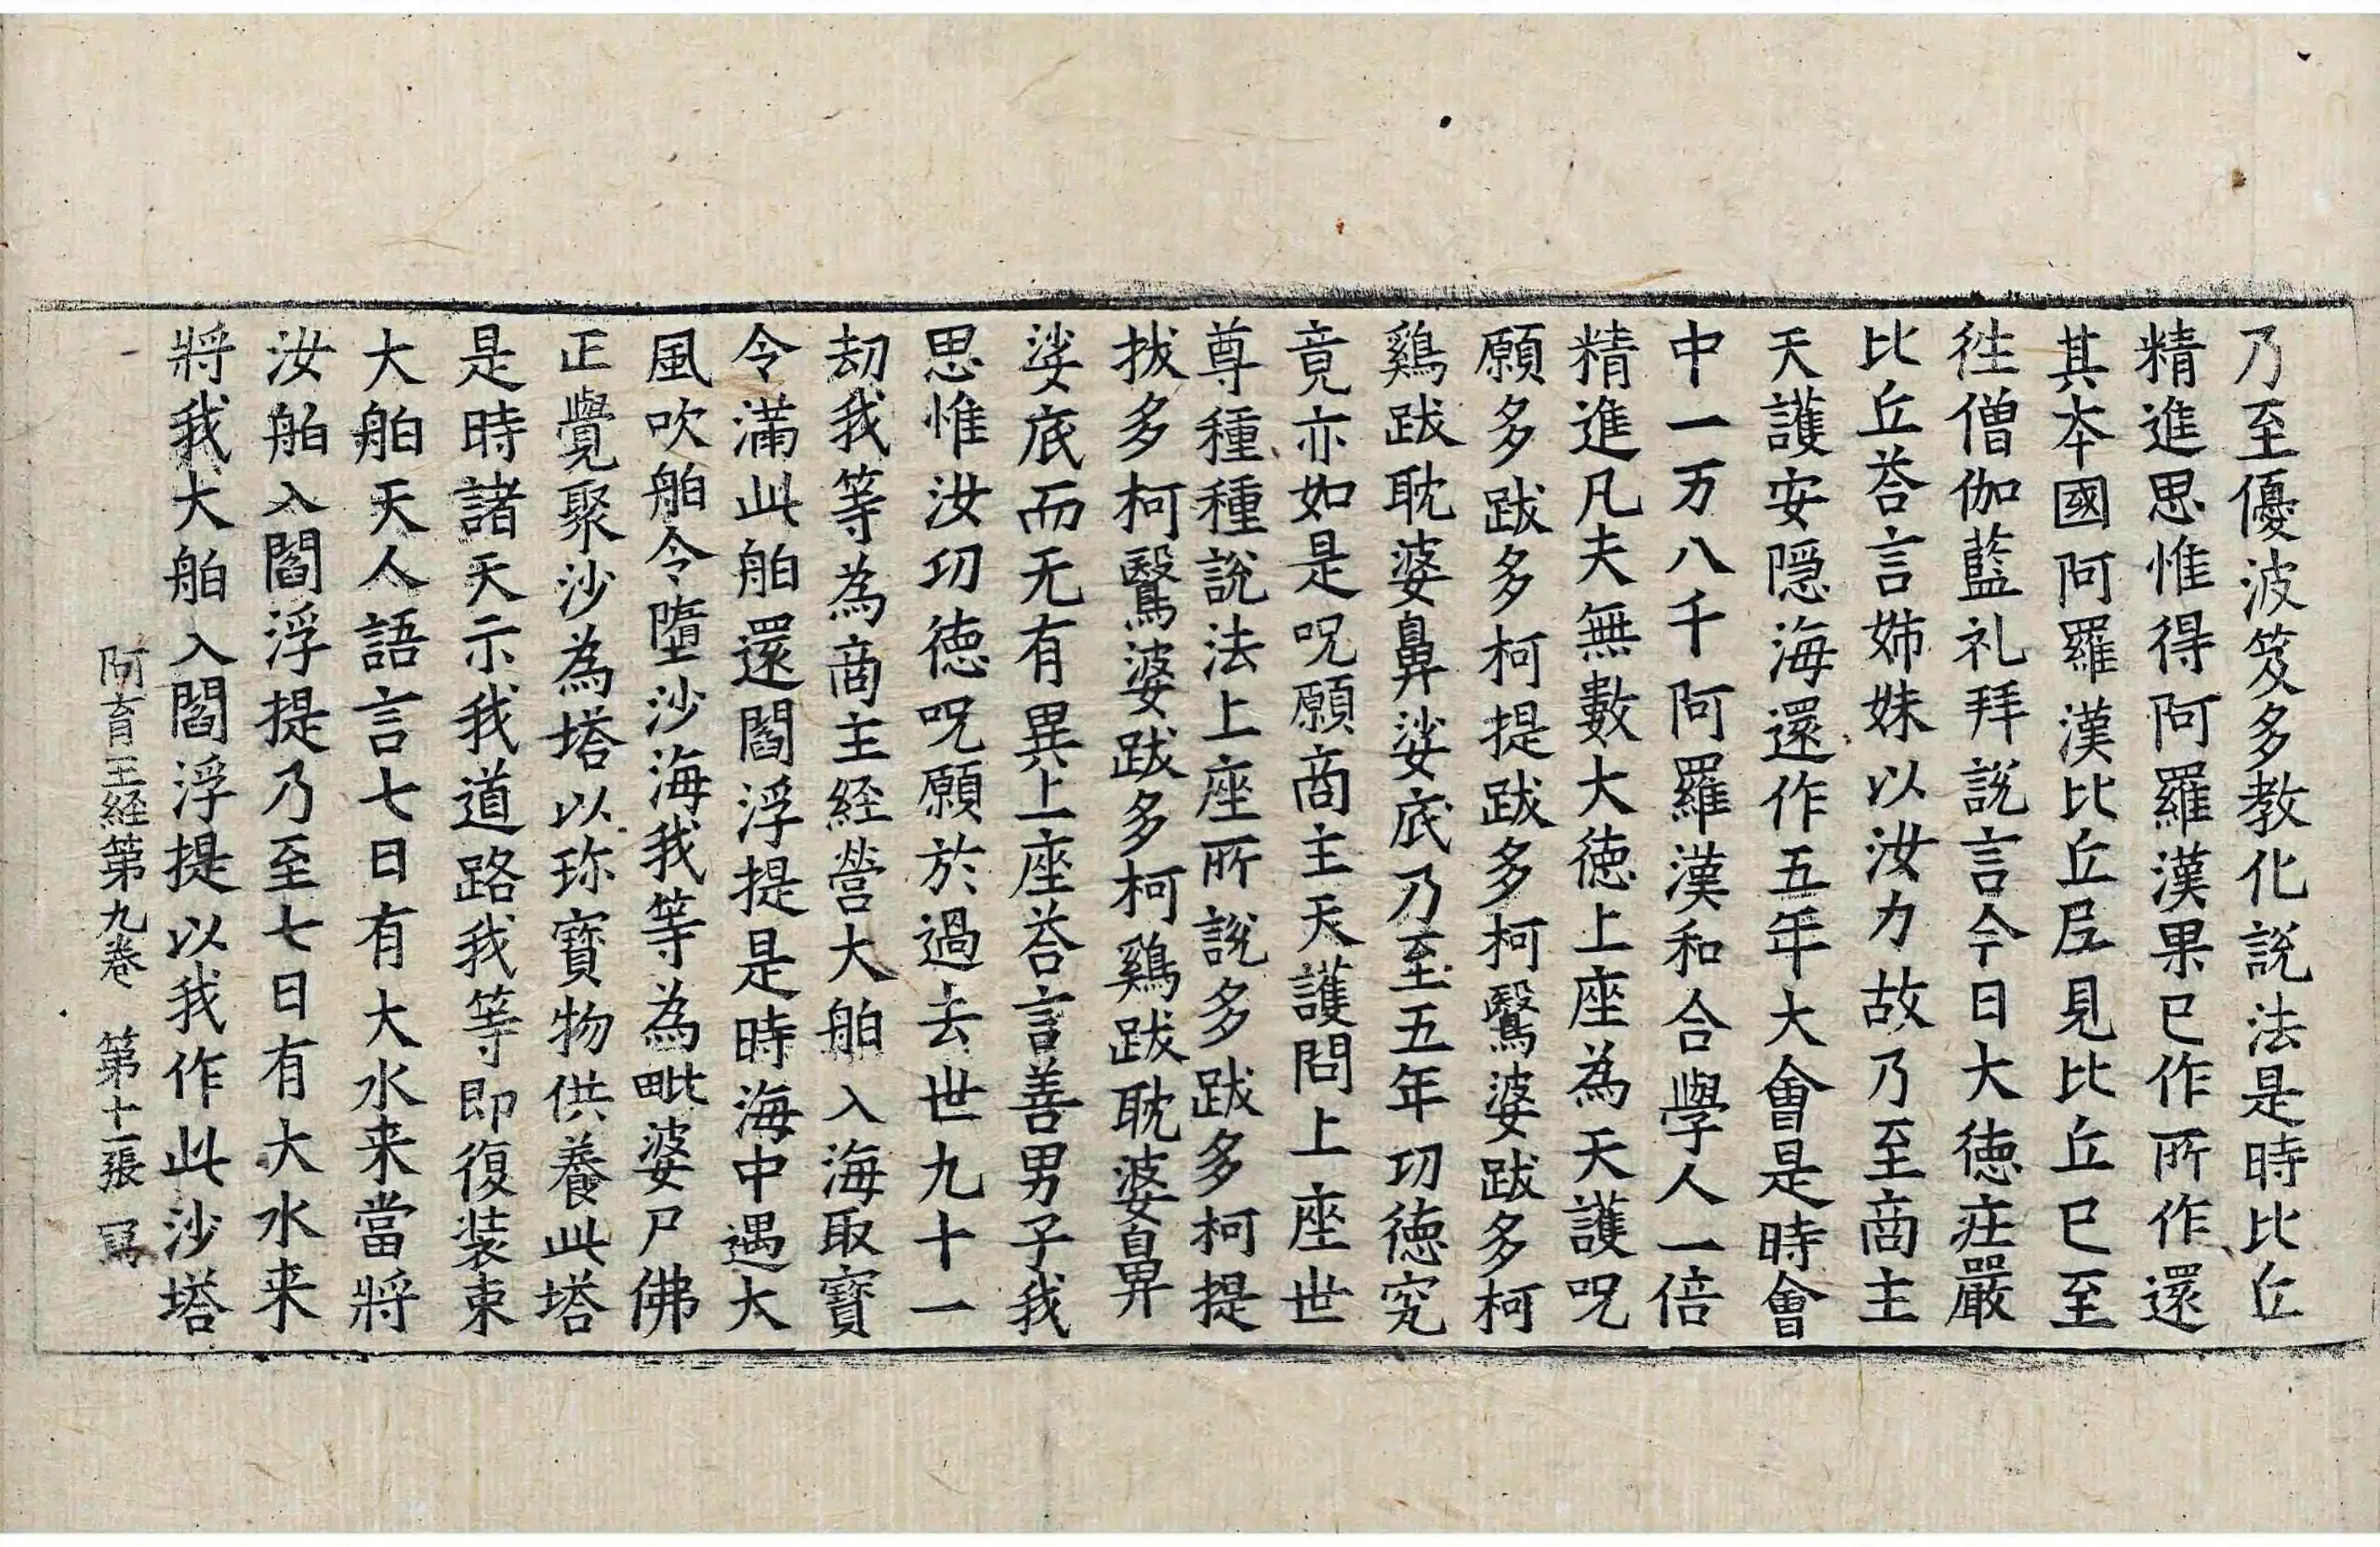 乃至優波笈多教化說法是時比丘
精進思惟得阿羅漢果已作所作還
其本國阿羅漢比丘尼見比丘已至
徃僧伽藍礼拜說言今日大德荘嚴
比丘荅言姊妹以汝力故乃至商主
天護安隱海還作五年大會是時會
中一万八千阿羅漢和合學人一倍
精進凡夫無數大德上座為天護呪
願多跋多柯提跋多柯鷖婆跋多柯
鷄跋耽婆鼻娑底乃至五年功德究
竟亦如是呪願商主天護問上座世
尊種種說法上座所說多跋多柯提
拔多柯鷖婆跋多柯鷄跋耽婆鼻
娑底而无有異上座荅言善男子我
思惟汝功德呪願於過去世九十一
劫我等為商主経營大舶入海取寶
令滿此舶還閻浮提是時海中遇大
風吹舶令墮沙海我等為毗婆尸佛
正覺聚沙為塔以珎寶物供養此塔
是時諸天示我道路我等即復装束
大舶天人語言七日有大水来當將
汝舶入閻浮提乃至七日有大水来
將我大舶入閻浮提以我作此沙塔
阿育王経第九卷 第十一張